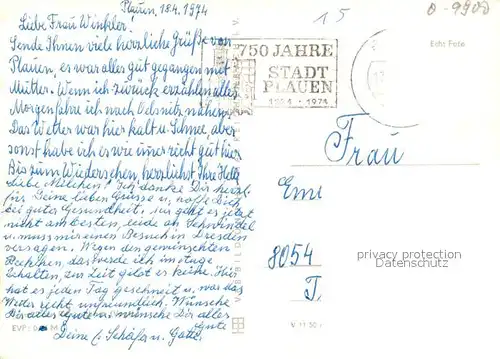 Plauen, 18.4.1974
Liebe Frau Winkler!
Sende Ihnen viele herzliche Grüße von
Plauen, es war alles gut gegangen mit
Mutter. Wenn ich zurück erzählen alles
Morgen fahre ich nach Ödsnitz nähen.
Das Wetter war hier kalt u. Schnee, aber
sonst habe ich es wie immer recht gut hier.
Bis zum Wiedersehen, herzlichst Ihre
Liebe Ich danke Dir herzl.
für Deine lieben Grüsse u. hoffe Dich
bei guter Gesundheit, mir geht es jetzt
nicht am besten, leide an Schwindel
u. muss mir einen Besuch in Dresden
versagen. Wegen den gewünschten
das werde ich im Auge
behalten, zur Zeit gibt es keine. Hier
hat es jeden Tag geschneit u. war das
Wetter recht unfreundlich. Wünsche
Dir alles Gute u. wünsche Dir alles
Gute
Deine
750 JAHRE
STADT
PLAUEN
1224 · 1974
15
0-9900
Echt Foto
Frau
8054
privacy protection
Datenschutz
VEB BILD
EVP: M
V 11 50